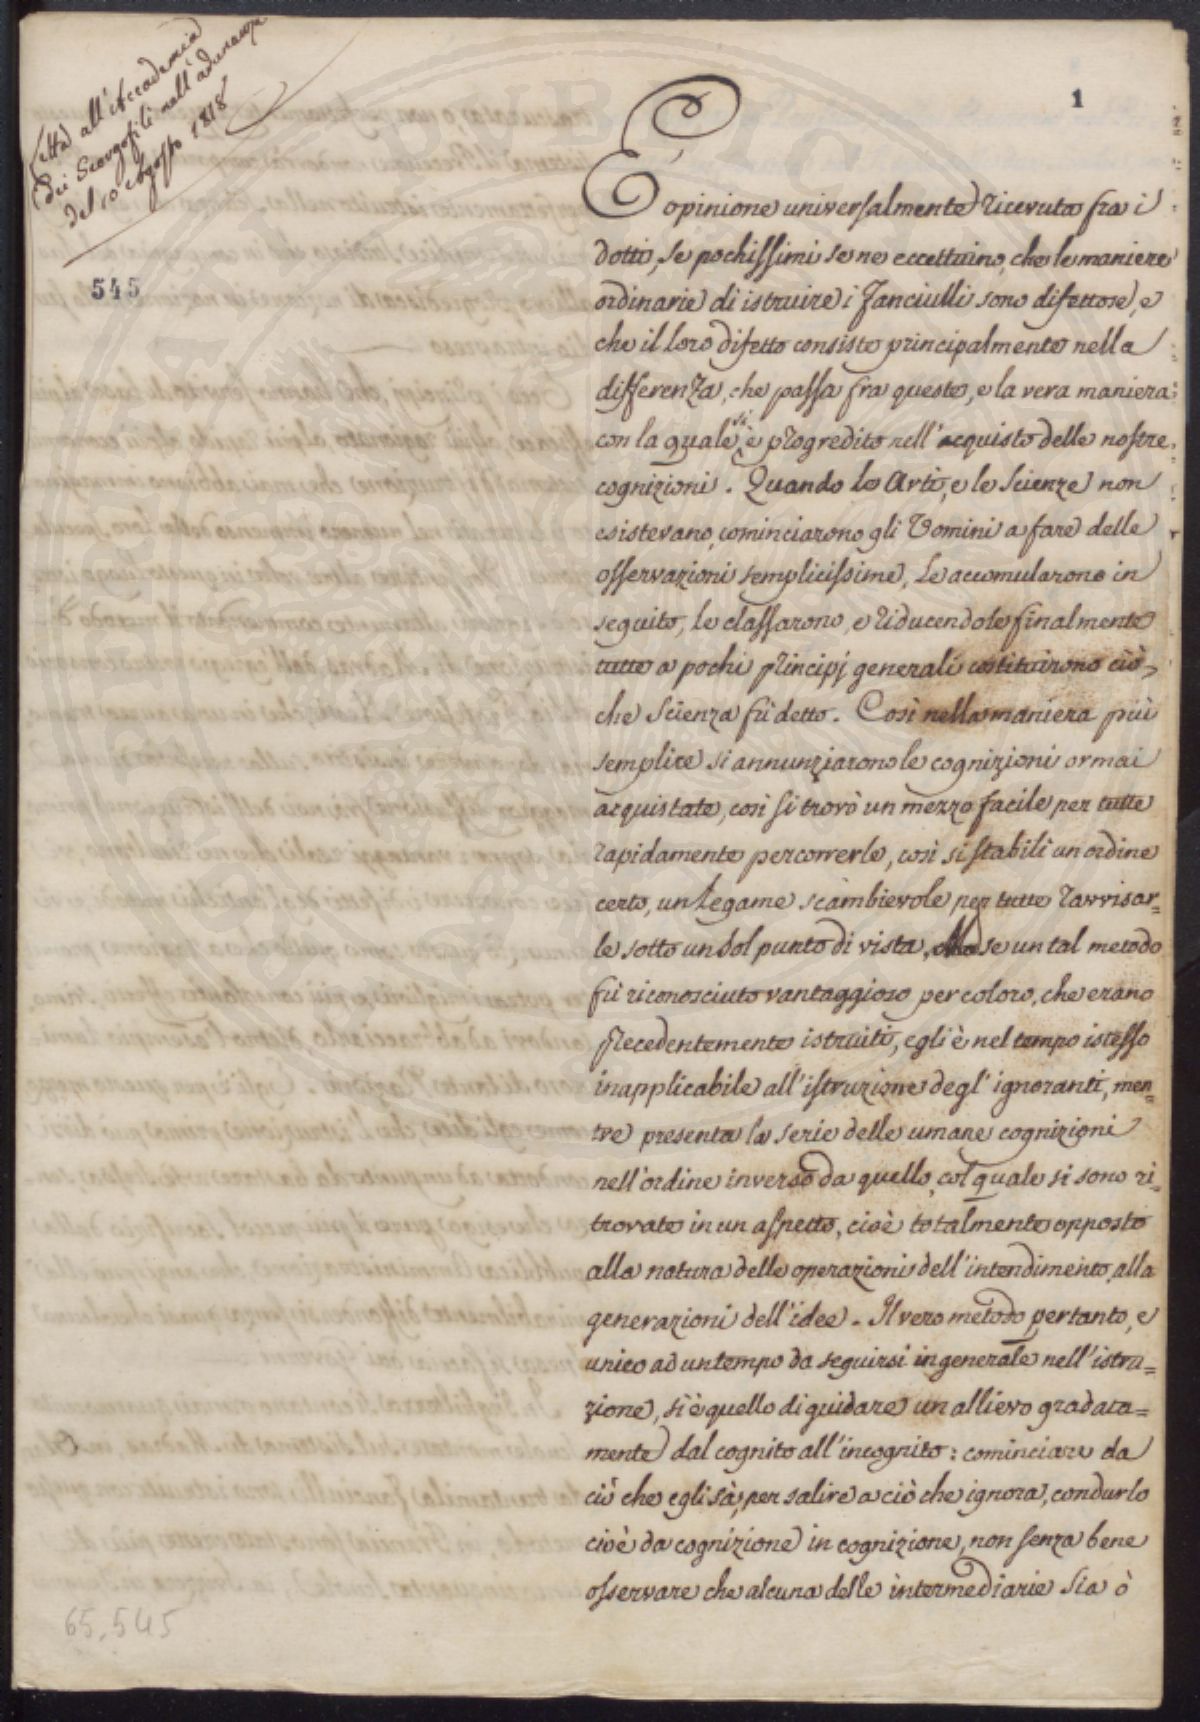 Letta all'Accademia
dei Georgofili nell'adunanza
del 10 Agosto 1818
545
1
E opinione universalmente ricevuta fra i
dotti, se pochissimi se ne eccettuino, che le maniere
ordinarie di istruire i Fanciulli sono difettose, e
che il loro difetto consiste principalmente nella
differenza, che passa fra queste, e la vera maniera
con la quale si è progredito nell'acquisto delle nostre
cognizioni. Quando le Arti, e le Scienze non
esistevano, cominciarono gli Uomini a fare delle
osservazioni semplicissime, Le accumularono in
seguito, le classarono, e riducendole finalmente
tutte a pochi principj generali costituirono ciò,
che Scienza fù detto. Così nella maniera più
semplice si annunziarono le cognizioni ormai
acquistate, così si trovò un mezzo facile per tutte
rapidamente percorrerle, così si stabilì un ordine
certo, un legame scambievole per tutte ravvisar=
le sotto un sol punto di vista, Ma se un tal metodo
fù riconosciuto vantaggioso per coloro, che erano
precedentemente istruiti, egli è nel tempo istesso
inapplicabile all'istruzione degl'ignoranti, men=
tre presenta la serie delle umane cognizioni
nell'ordine inverso da quello, col quale si sono ri=
trovate in un aspetto, cioè totalmente opposto
alla natura delle operazioni dell'intendimento, alla
generazioni dell'idee. Il vero metodo pertanto, e
unico ad un tempo da seguirsi in generale nell'istru=
zione, si è quello di guidare un allievo gradata=
mente dal cognito all'incognito: cominciare da
ciò che egli sà, per salire a ciò che ignora, condurlo
cioè da cognizione in cognizione, non senza bene
osservare che alcuna delle intermediarie sia ò
65.545